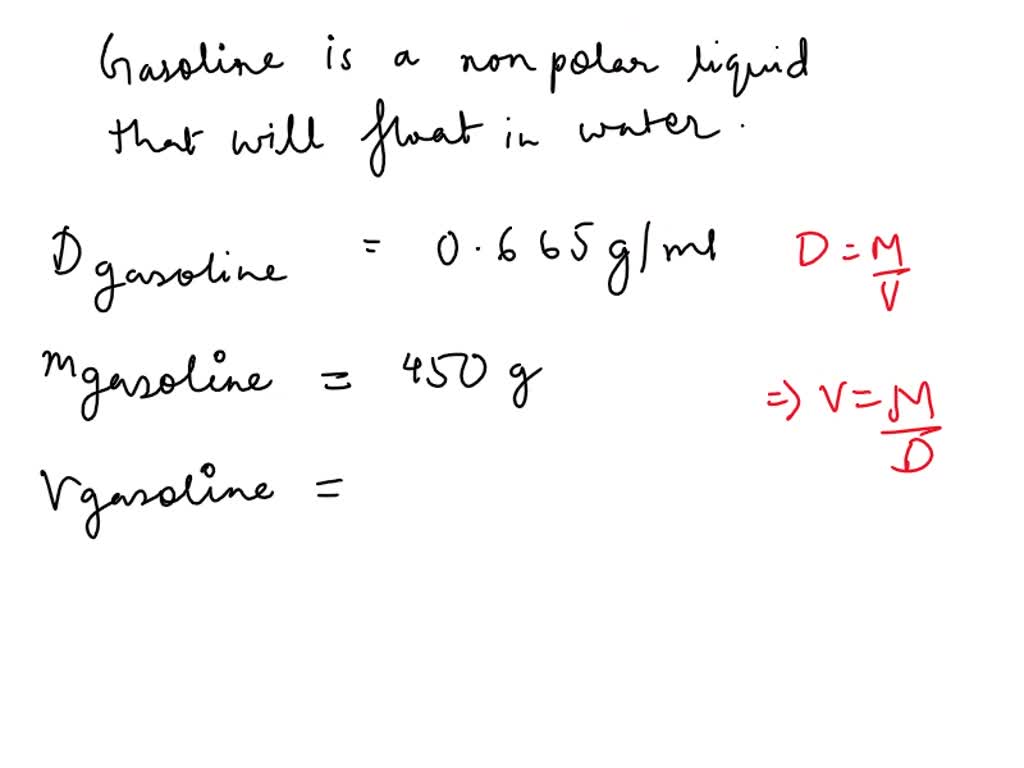 Gasoline is a non polar liquid
that will float in water.
D gasoline = 0.665 g/ml
D = M/V
m gasoline = 450 g
=> V = M/D
V gasoline =